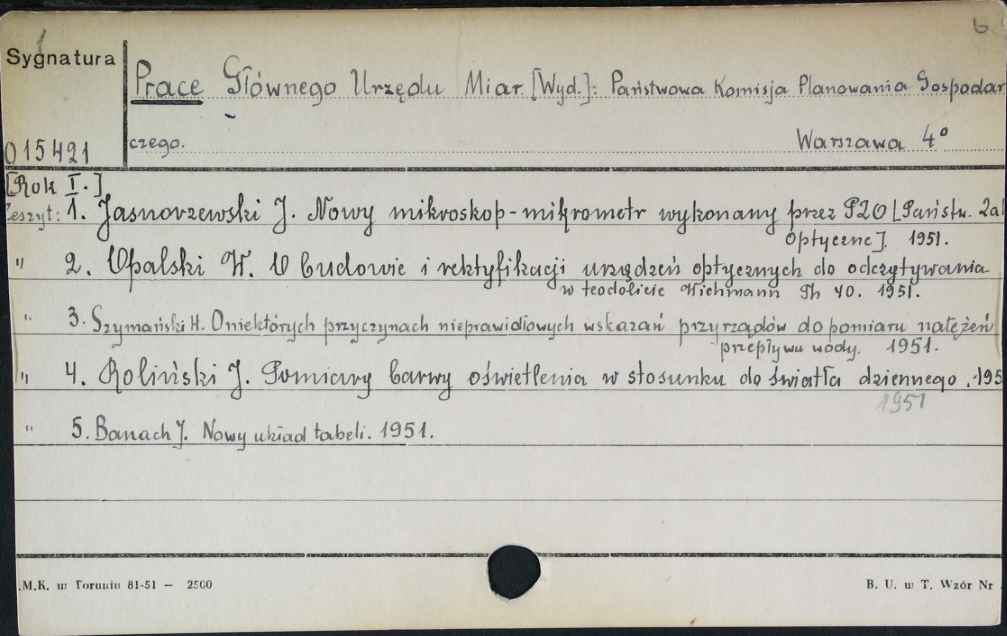 6
Sygnatura
Prace Głównego Urzędu Miar. [Wyd.]: Państwowa Komisja Planowania Gospodar
czego. Warszawa 4°
015421
[Rok I.]
Zeszyt: 1. Jasnorzewski J. Nowy mikroskop-mikrometr wykonany przez PZO [Państw. Zakł
Optyczne]. 1951.
" 2. Opalski W. O budowie i rektyfikacji urządzeń optycznych do odczytywania
w teodolicie Wichmann Th 40. 1951.
" 3. Szymański H. O niektórych przyczynach nieprawidłowych wskazań przyrządów do pomiaru natężeń
przepływu wody. 1951.
" 4. Roliński J. Pomiary barwy oświetlenia w stosunku do światła dziennego. 195
1951
" 5. Banach J. Nowy układ tabeli. 1951.
.M.K. w Toruniu 81-51 — 2500
B. U. w T. Wzór Nr